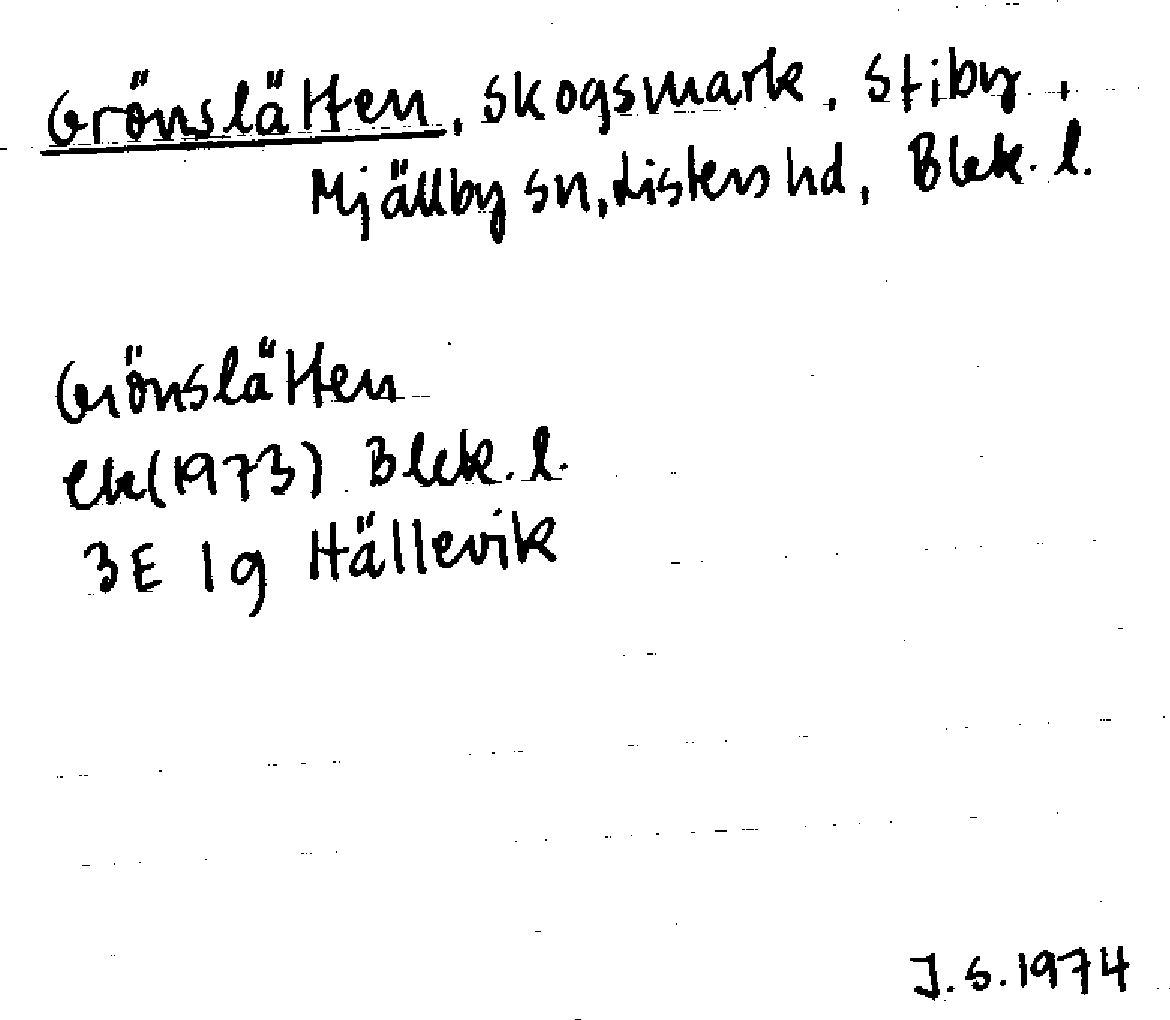 Grönslätten, skogsmark, Stiby,
Mjällby sn, Listers hd, Blek. l.
Grönslätten
ek (1973) Blek. l.
3E 1g Hällevik
J.S. 1974